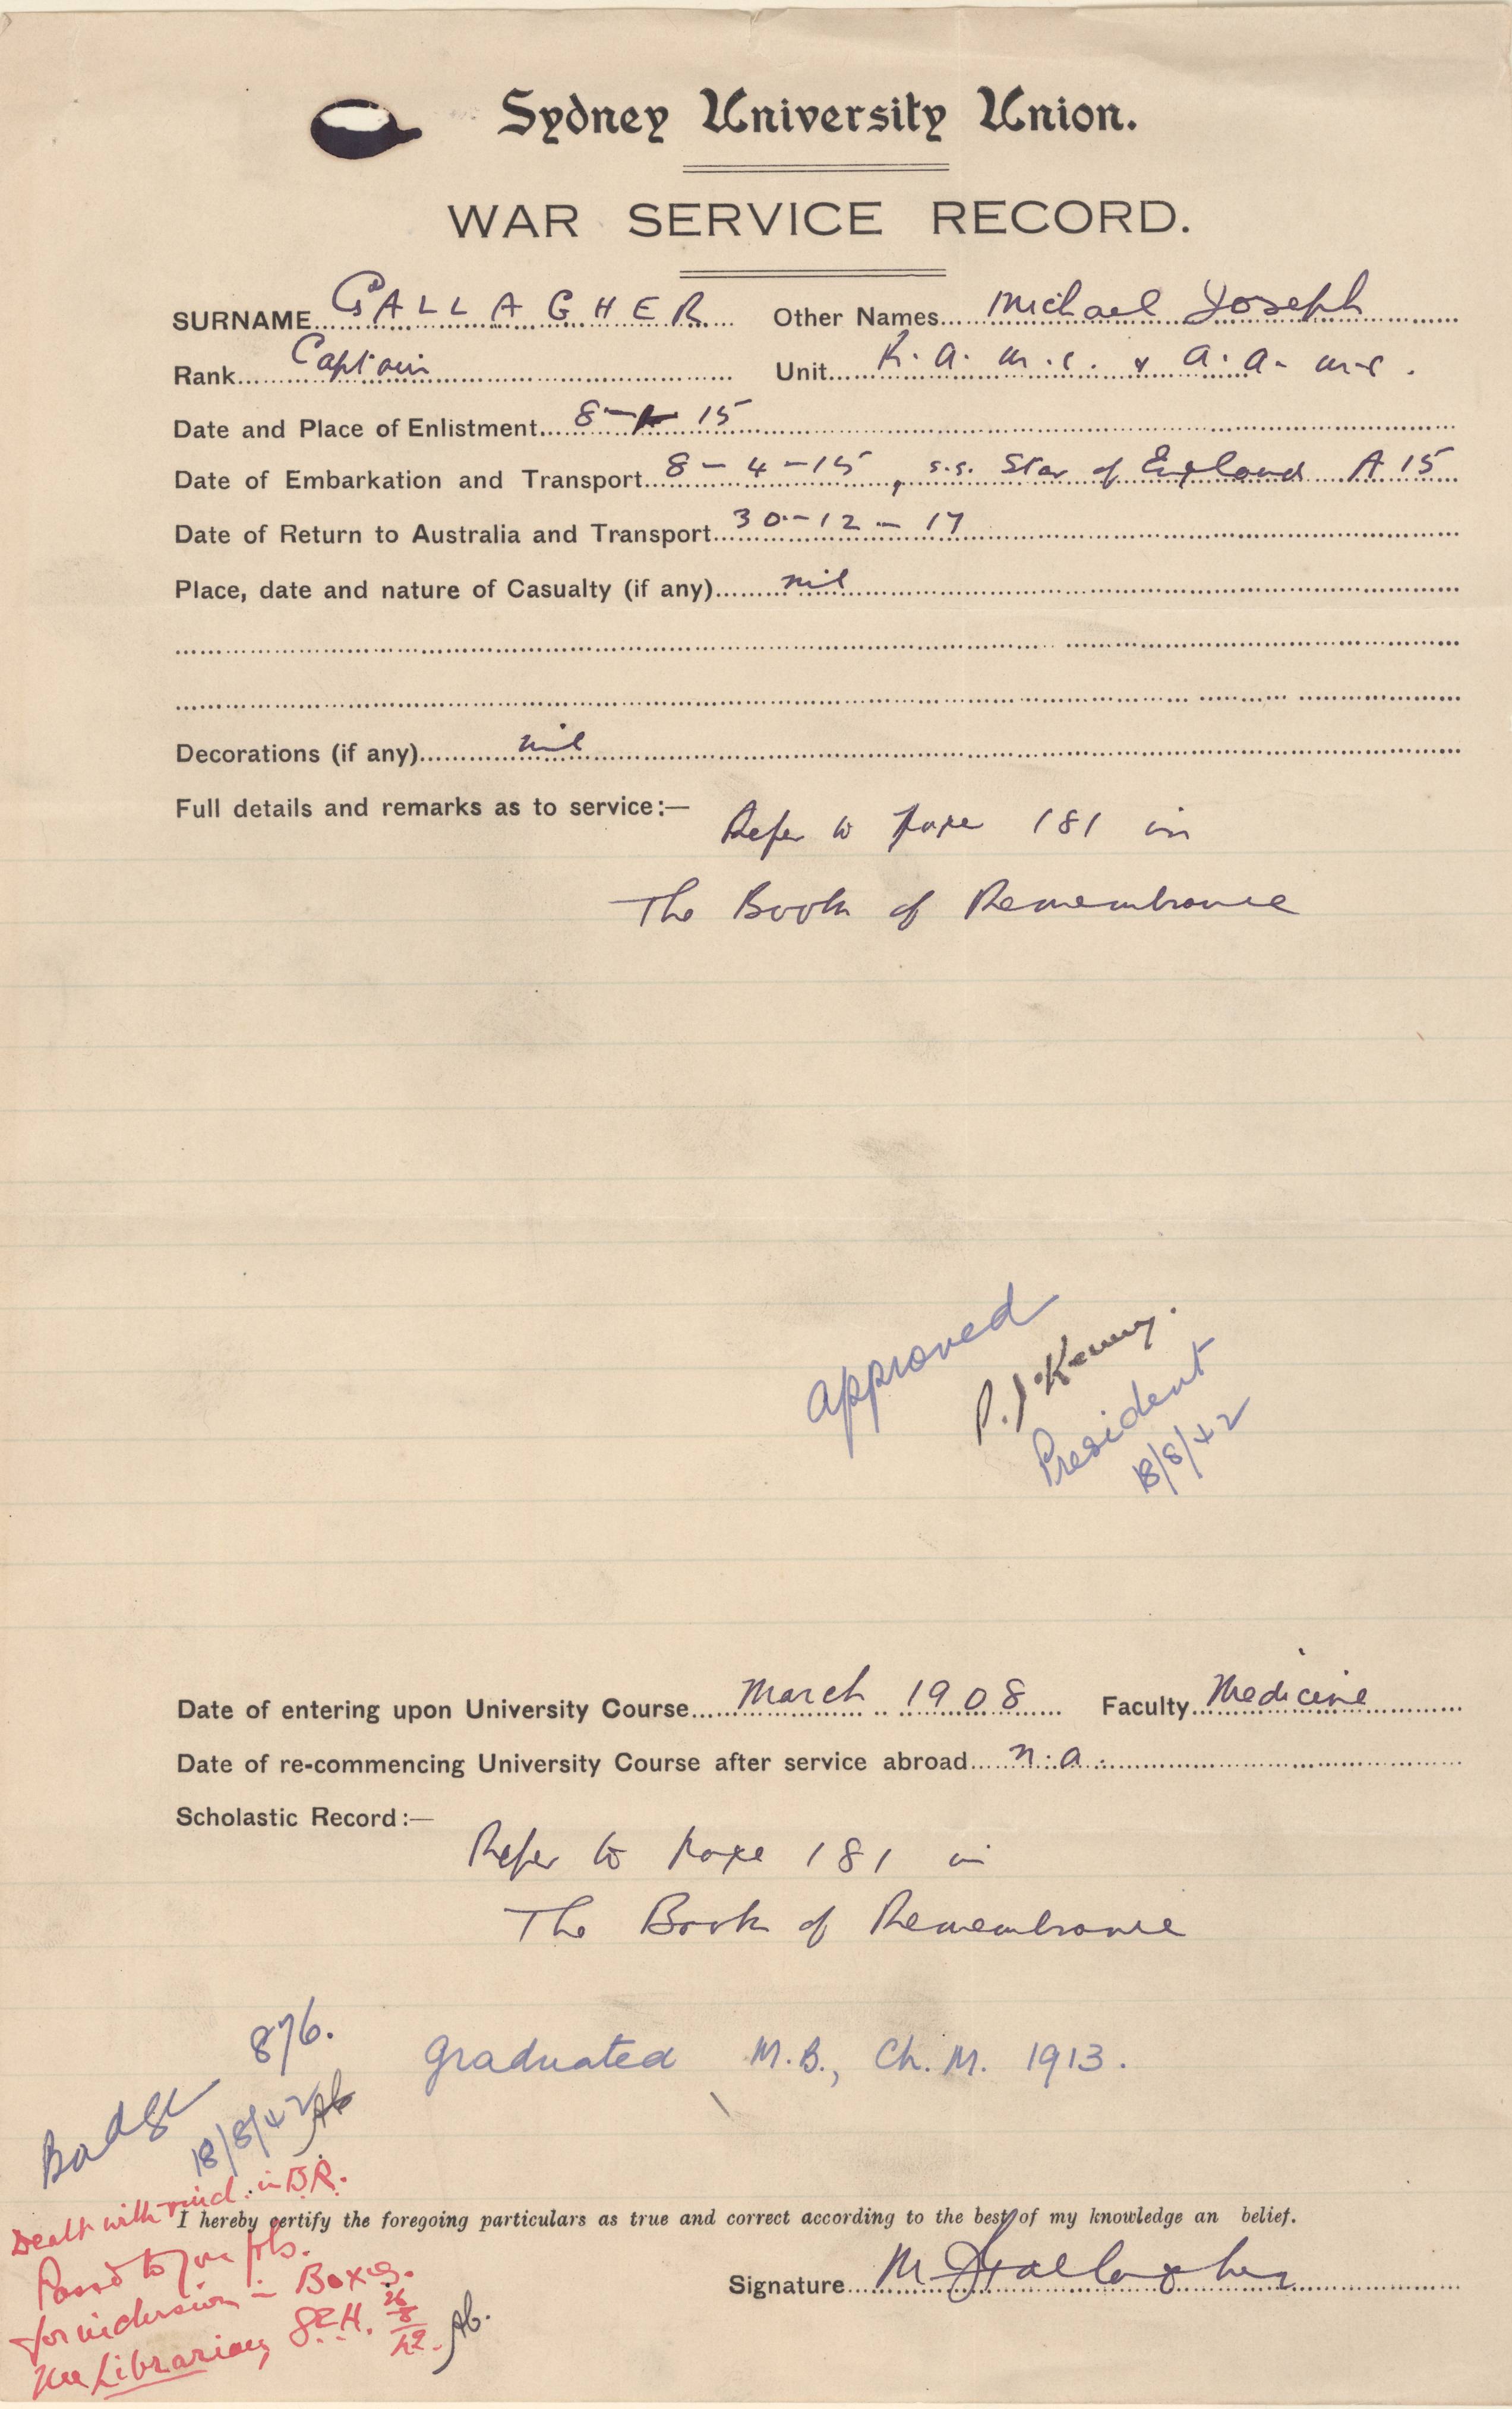 Sydney University Union.
WAR SERVICE RECORD.
SURNAME GALLAGHER Other Names Michael Joseph
Rank Captain Unit R.A.M.C. & A.A.M.C.
Date and Place of Enlistment 8-4-15
Date of Embarkation and Transport 8-4-15, s.s. Star of England A15
Date of Return to Australia and Transport 30-12-17
Place, date and nature of Casualty (if any) nil
Decorations (if any) nil
Full details and remarks as to service:—
Refer to page 181 in
The Book of Remembrance
Approved
P.J. Kenny.
President
18/8/42
Date of entering upon University Course March 1908 Faculty Medicine
Date of re-commencing University Course after service abroad n.a.
Scholastic Record:—
Refer to page 181 in
The Book of Remembrance
Graduated M.B., Ch.M. 1913.
Badge 876.
18/8/42
Dealt with in B.R.
Passed to
for inclusion in Boxes.
The Librarian,
26/8/42.
I hereby certify the foregoing particulars as true and correct according to the best of my knowledge an belief.
Signature M J Gallagher